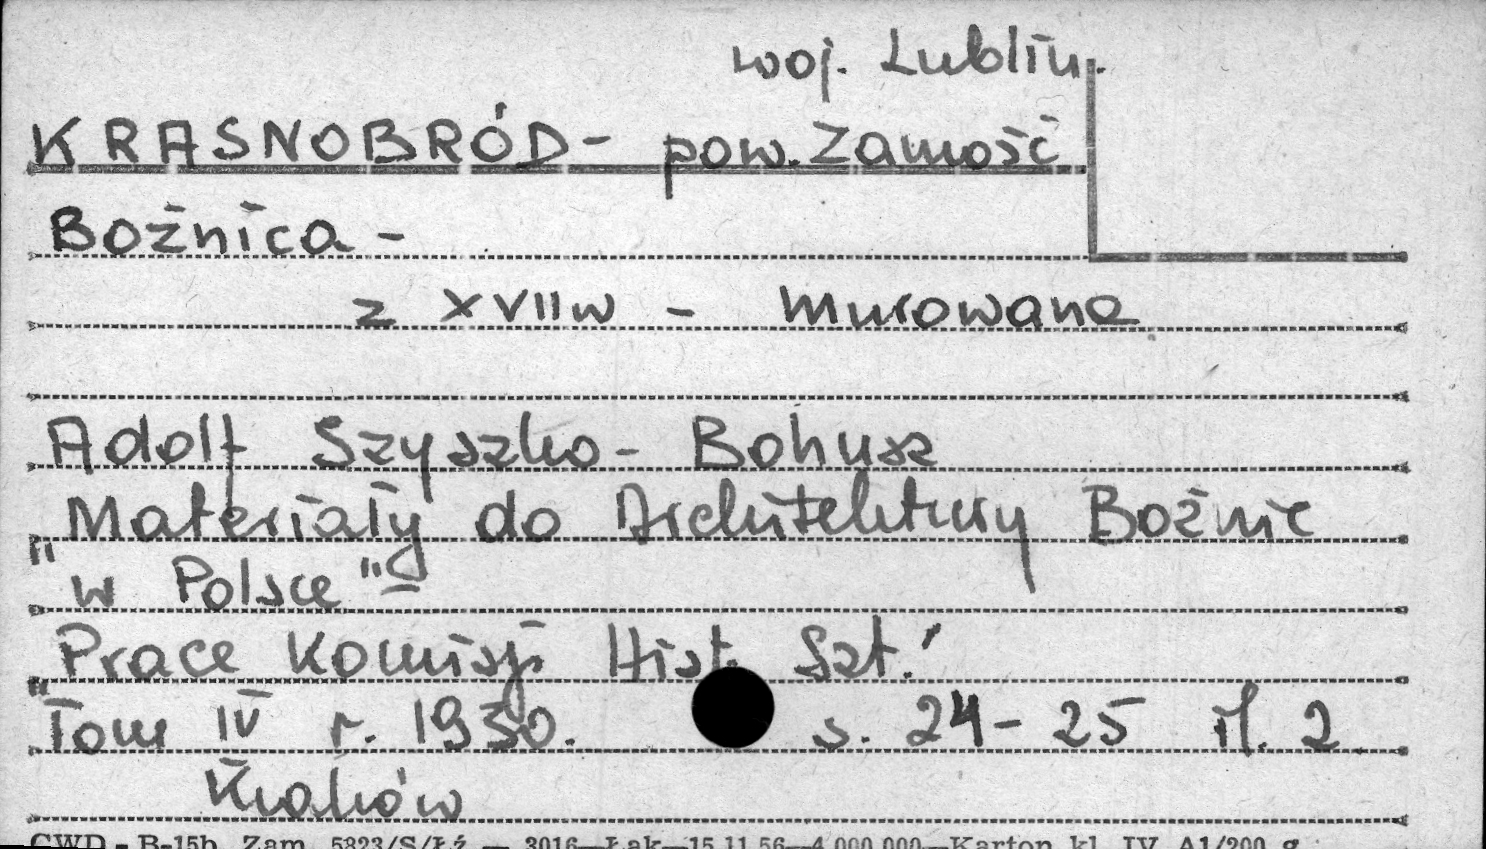 woj. Lublin.
KRASNOBRÓD - pow. Zamość
Bożnica -
z XVII w - murowana
Adolf Szyszko - Bohusz
"Materiały do Architektury Bożnic
w Polsce" -
"Prace Komisji Hist. Szt."
Tom IV r. 1930. s. 24-25 il. 2
Kraków
CWD - B-15b. Zam. 5823/S/Łź — 3016—Łak—15.11.56—4.000.000—Karton kl. IV. A1/200 g.